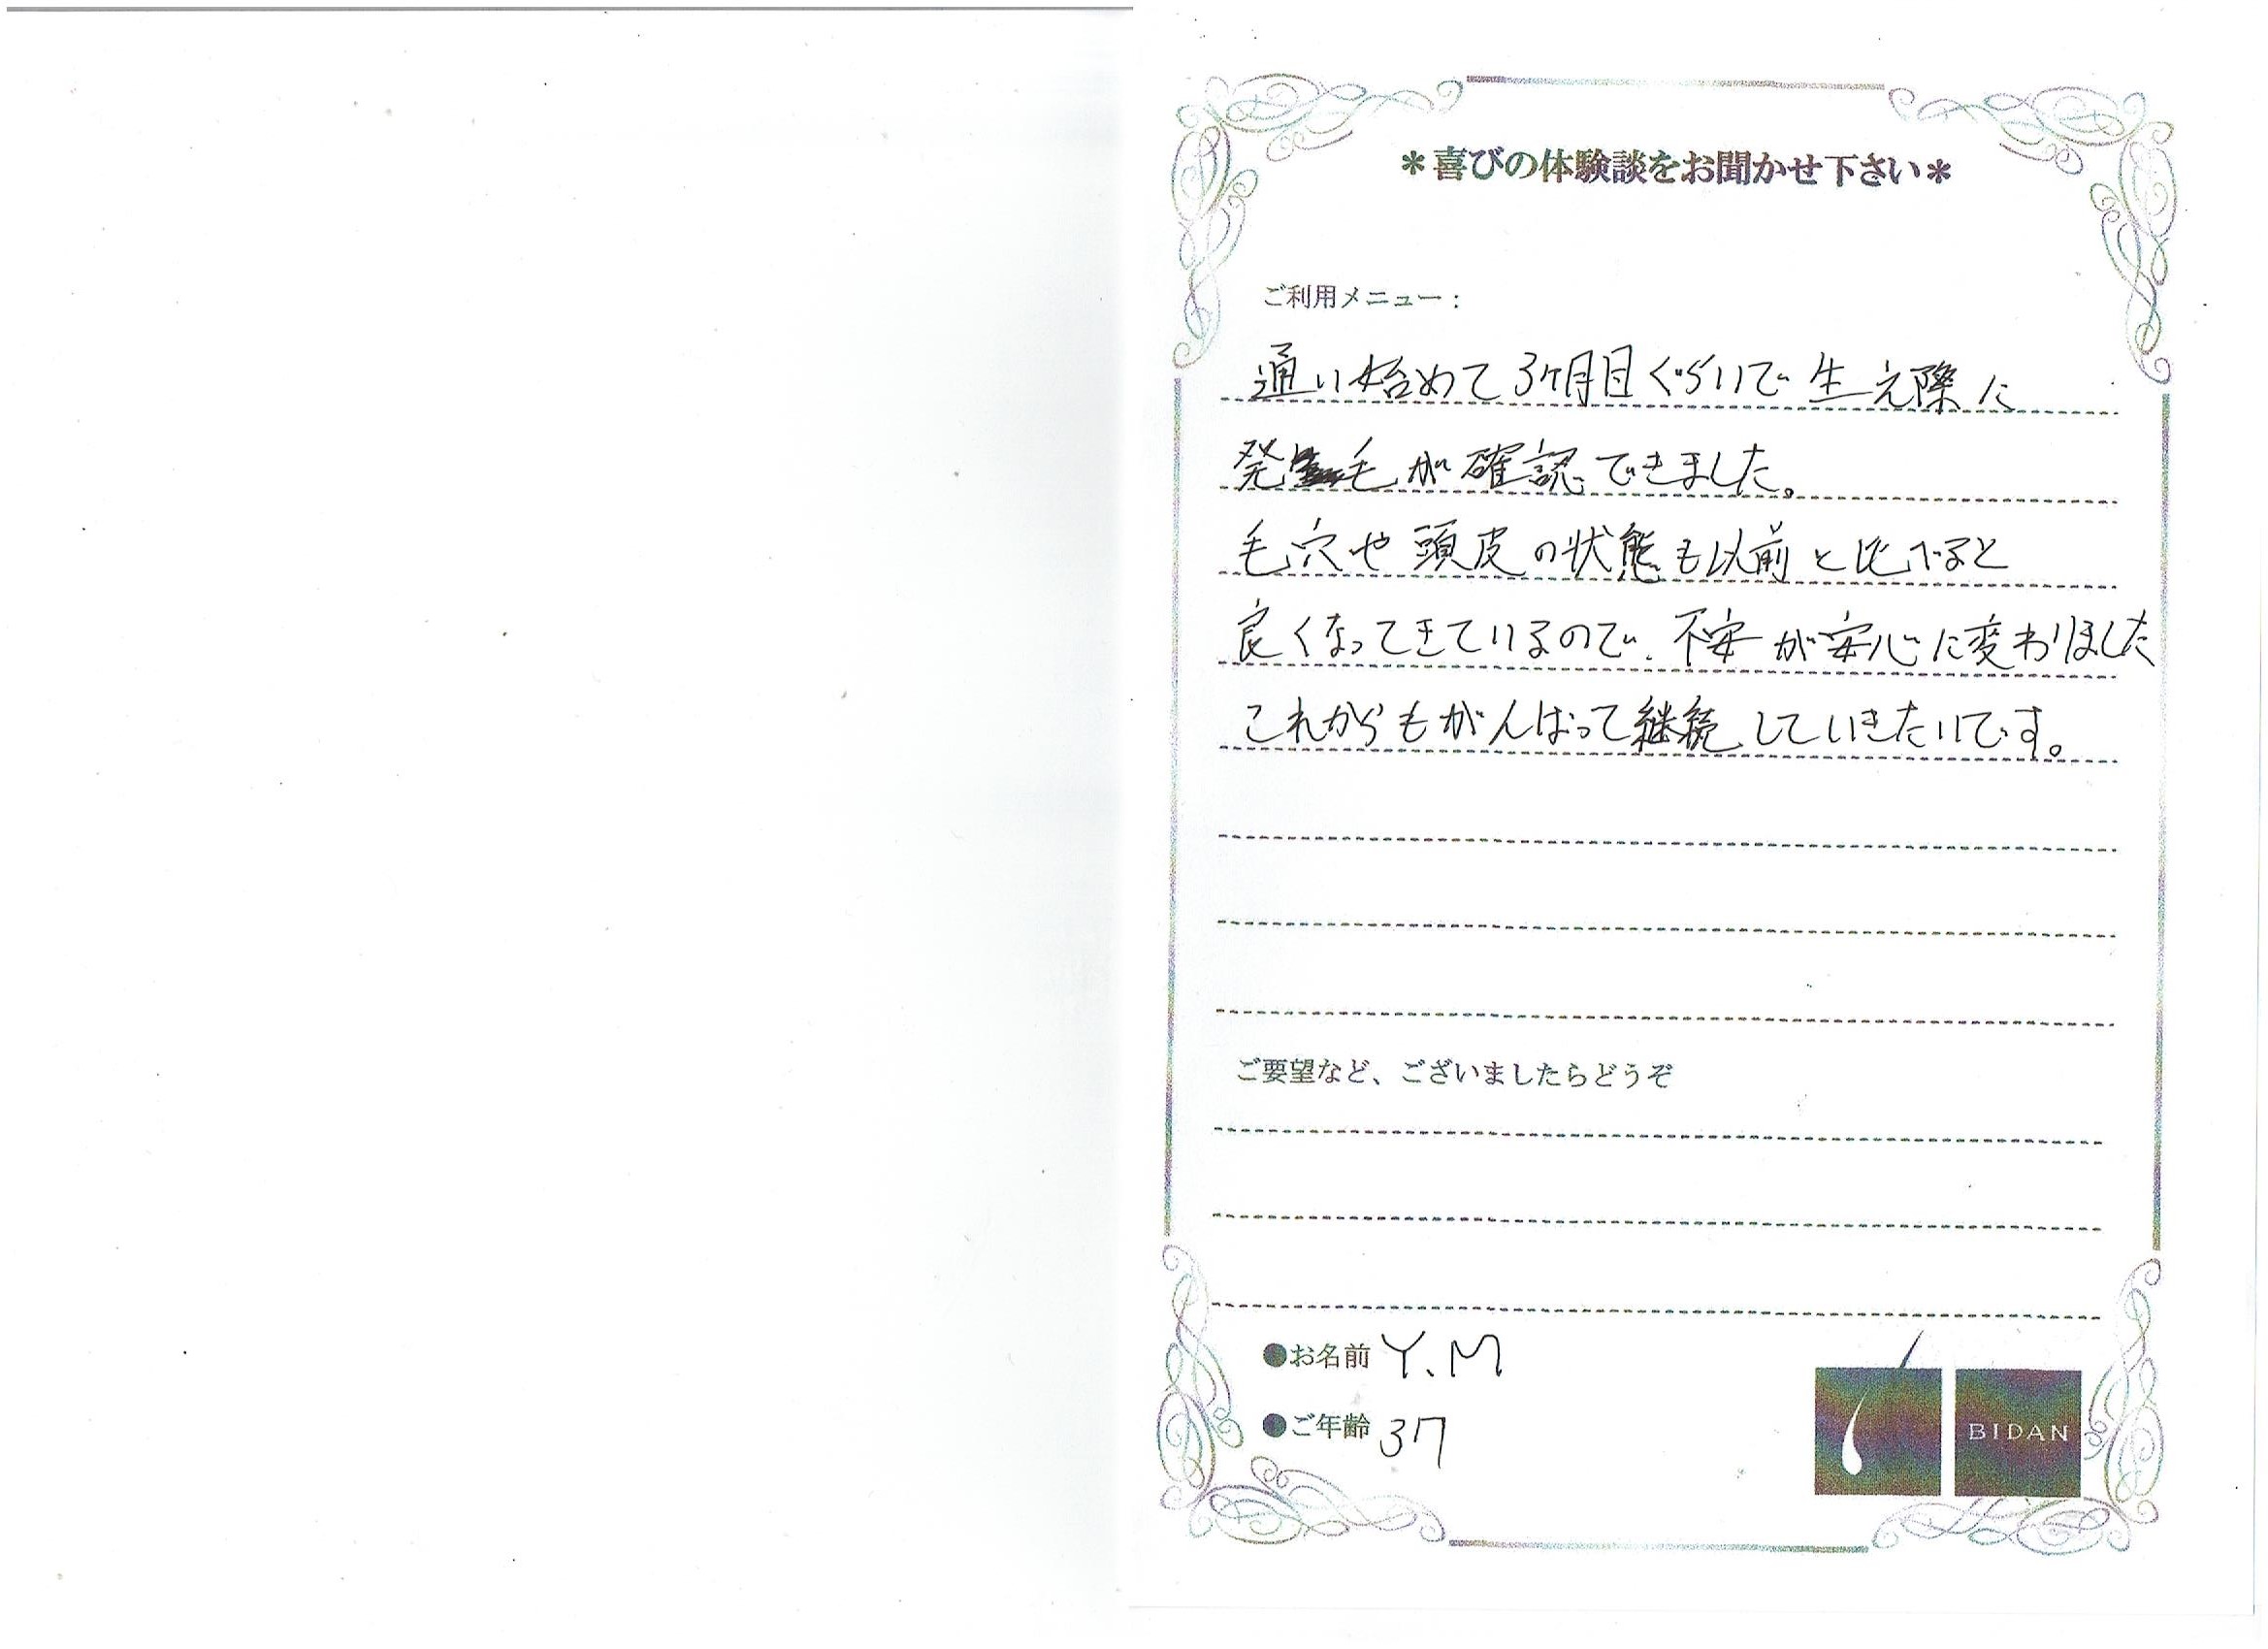 ＊喜びの体験談をお聞かせ下さい＊
ご利用メニュー：
通い始めて3ヶ月目ぐらいで生え際に
発毛が確認できました。
毛穴や頭皮の状態も以前と比べると
良くなってきているので、不安が安心に変わりました
これからもがんばって継続していきたいです。
ご要望など、ございましたらどうぞ
●お名前 Y.M
●ご年齢 37
BIDAN